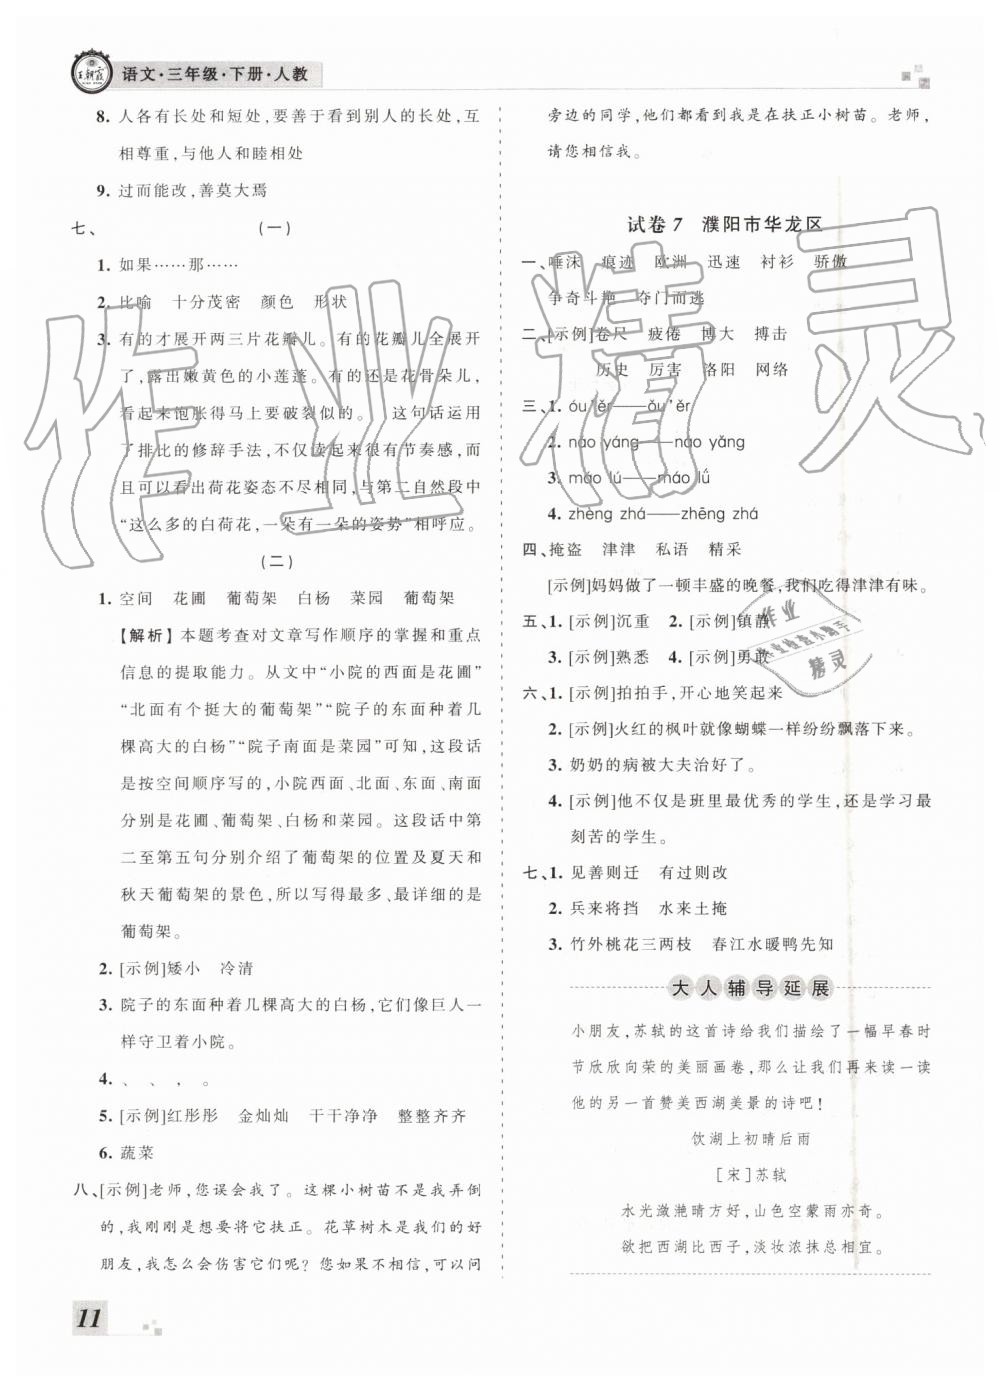 王朝霞
语文·三年级·下册·人教
8. 人各有长处和短处,要善于看到别人的长处,互
相尊重,与他人和睦相处
9. 过而能改,善莫大焉
七、 (一)
1. 如果……那……
2. 比喻 十分茂密 颜色 形状
3. 有的才展开两三片花瓣儿。有的花瓣儿全展开
了,露出嫩黄色的小莲蓬。有的还是花骨朵儿,
看起来饱胀得马上要破裂似的。 这句话运用
了排比的修辞手法,不仅读起来很有节奏感,而
且可以看出荷花姿态不尽相同,与第二自然段中
“这么多的白荷花,一朵有一朵的姿势”相呼应。
(二)
1. 空间 花圃 葡萄架 白杨 菜园 葡萄架
【解析】本题考查对文章写作顺序的掌握和重点
信息的提取能力。从文中“小院的西面是花圃”
“北面有个挺大的葡萄架”“院子的东面种着几
棵高大的白杨”“院子南面是菜园”可知,这段话
是按空间顺序写的,小院西面、北面、东面、南面
分别是花圃、葡萄架、白杨和菜园。这段话中第
二至第五句分别介绍了葡萄架的位置及夏天和
秋天葡萄架的景色,所以写得最多、最详细的是
葡萄架。
2. [示例]矮小 冷清
3. 院子的东面种着几棵高大的白杨,它们像巨人一
样守卫着小院。
4. 、 、 , 。
5. [示例]红彤彤 金灿灿 干干净净 整整齐齐
6. 蔬菜
八、[示例]老师,您误会我了。这棵小树苗不是我弄倒
的,我刚刚是想要将它扶正。花草树木是我们的好
朋友,我怎么会伤害它们呢?您如果不相信,可以问
11
旁边的同学,他们都看到我是在扶正小树苗。老师,
请您相信我。
试卷7 濮阳市华龙区
一、唾沫 痕迹 欧洲 迅速 衬衫 骄傲
争奇斗艳 夺门而逃
二、[示例]卷尺 疲倦 博大 搏击
历史 厉害 洛阳 网络
三、1. óu'ěr——ǒu'ěr
2. náo yáng——náo yǎng
3. máo lú——máo lǘ
4. zhèng zhá——zhēng zhá
四、掩盗 津津 私语 精采
[示例]妈妈做了一顿丰盛的晚餐,我们吃得津津有味。
五、1. [示例]沉重 2. [示例]镇静
3. [示例]熟悉 4. [示例]勇敢
六、1. [示例]拍拍手,开心地笑起来
2. [示例]火红的枫叶就像蝴蝶一样纷纷飘落下来。
3. 奶奶的病被大夫治好了。
4. [示例]他不仅是班里最优秀的学生,还是学习最
刻苦的学生。
七、1. 见善则迁 有过则改
2. 兵来将挡 水来土掩
3. 竹外桃花三两枝 春江水暖鸭先知
大人辅导延展
小朋友,苏轼的这首诗给我们描绘了一幅早春时
节欣欣向荣的美丽画卷,那么让我们再来读一读
他的另一首赞美西湖美景的诗吧!
饮湖上初晴后雨
[宋]苏轼
水光潋滟晴方好,山色空蒙雨亦奇。
欲把西湖比西子,淡妆浓抹总相宜。
作业精灵
作业
精灵